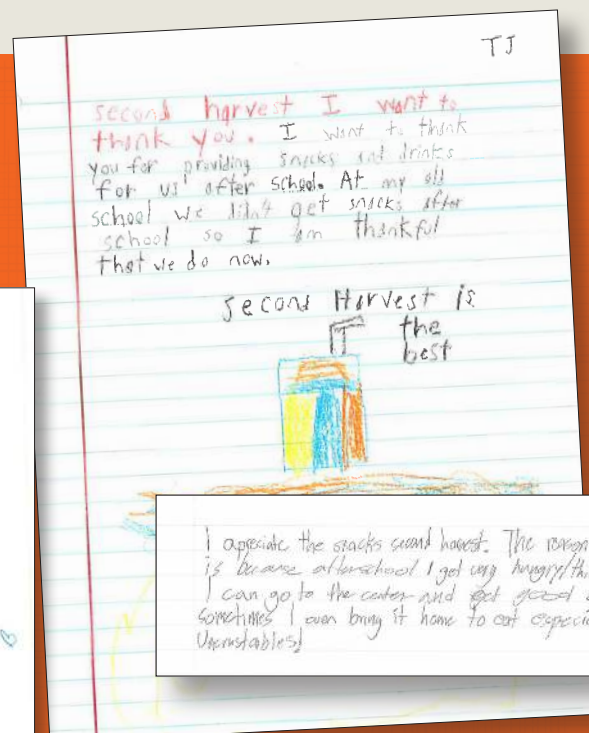 TJ
second harvest I want to
thank you. I want to thank
you for providing snacks and drinks
for us after school. At my old
school we didn't get snacks after
school so I am thankful
that we do now.
Second Harvest is
the
best
I apreciate the snacks second harvest. The reason
is because afterschool I get very hungry/th
I can go to the center and get good
sometimes I even bring it home to eat especi
Uncrustables!